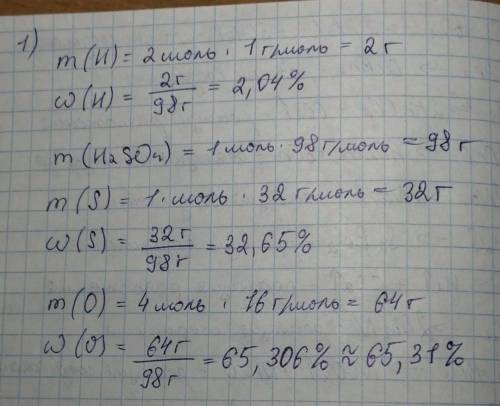 1)
m(H) = 2 моль · 1 г/моль = 2 г
w(H) = 2г/98г = 2,04%
m(H2SO4) = 1 моль · 98 г/моль = 98 г
m(S) = 1 · моль · 32 г/моль = 32г
w(S) = 32г/98г = 32,65%
m(O) = 4 моль · 16 г/моль = 64г
w(O) = 64г/98г = 65,306% ≈ 65,31%